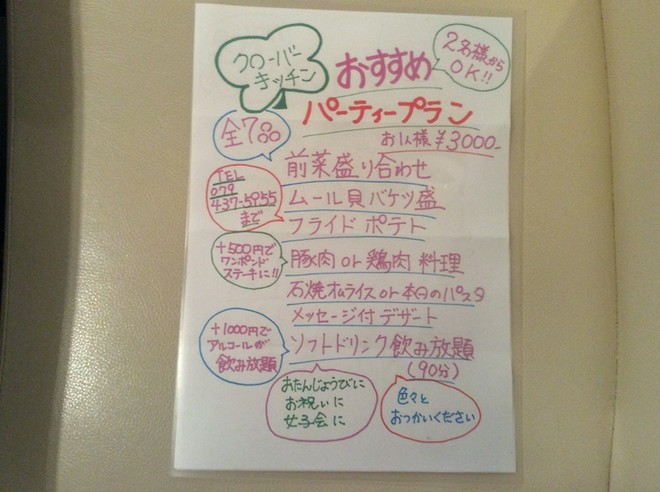 クローバー
キッチン
おすすめ
2名様から
OK!!
パーティープラン
お1人様 ¥3000-
全7品
前菜盛り合わせ
ムール貝バケツ盛
TEL
079
437-5955
まで
フライドポテト
豚肉or鶏肉料理
+500円で
ワンポンド
ステーキに!!
石焼オムライスor本日のパスタ
メッセージ付デザート
ソフトドリンク飲み放題
(90分)
+1000円で
アルコールが
飲み放題
おたんじょうびに
お祝いに
女子会に
色々と
おつかいください